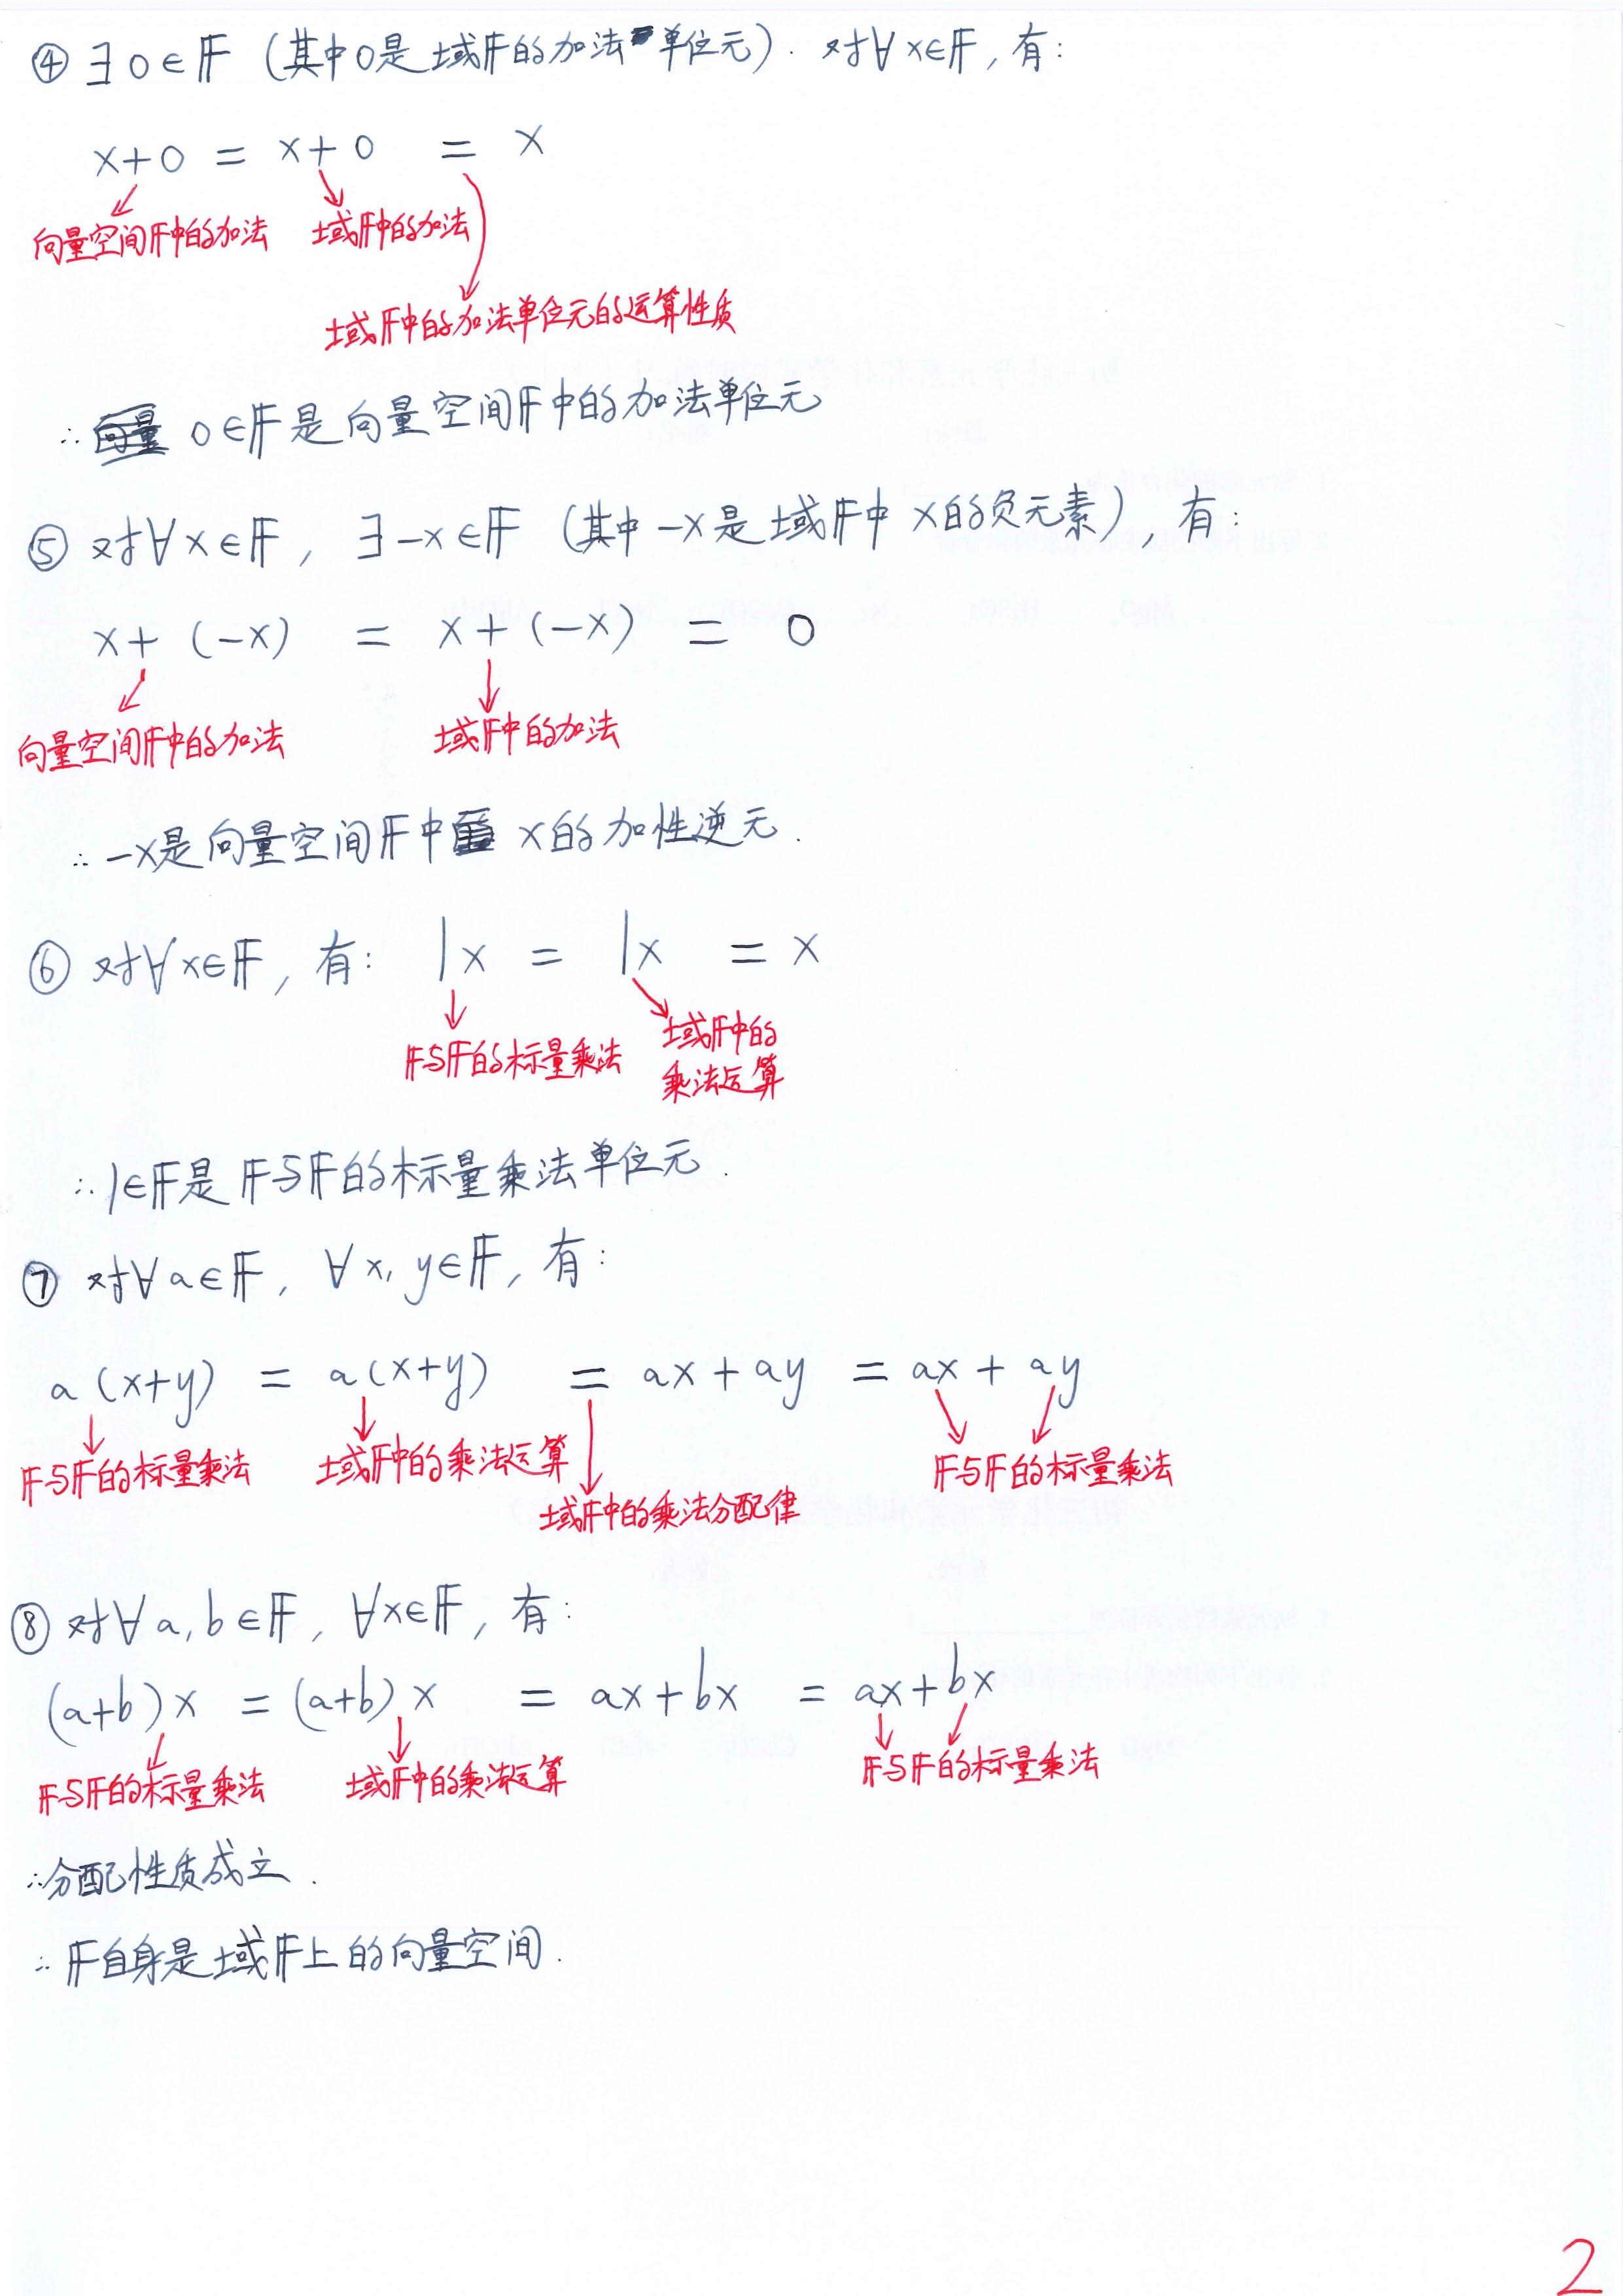 ④ ∃0∈𝔽 (其中0是域𝔽的加法单位元). 对∀x∈𝔽, 有:
x+0 = x+0 = x
向量空间𝔽中的加法 域𝔽中的加法
域𝔽中的加法单位元的运算性质
∴ 0∈𝔽是向量空间𝔽中的加法单位元
⑤ 对∀x∈𝔽, ∃-x∈𝔽 (其中-x是域𝔽中x的负元素), 有:
x+(-x) = x+(-x) = 0
向量空间𝔽中的加法 域𝔽中的加法
∴ -x是向量空间𝔽中x的加性逆元.
⑥ 对∀x∈𝔽, 有: 1x = 1x = x
𝔽与𝔽的标量乘法 域𝔽中的
乘法运算
∴ 1∈𝔽是𝔽与𝔽的标量乘法单位元.
⑦ 对∀a∈𝔽, ∀x,y∈𝔽, 有:
a(x+y) = a(x+y) = ax+ay = ax+ay
𝔽与𝔽的标量乘法 域𝔽中的乘法运算 𝔽与𝔽的标量乘法
域𝔽中的乘法分配律
⑧ 对∀a,b∈𝔽, ∀x∈𝔽, 有:
(a+b)x = (a+b)x = ax+bx = ax+bx
𝔽与𝔽的标量乘法 域𝔽中的乘法运算 𝔽与𝔽的标量乘法
∴分配性质成立.
∴ 𝔽自身是域𝔽上的向量空间.
2